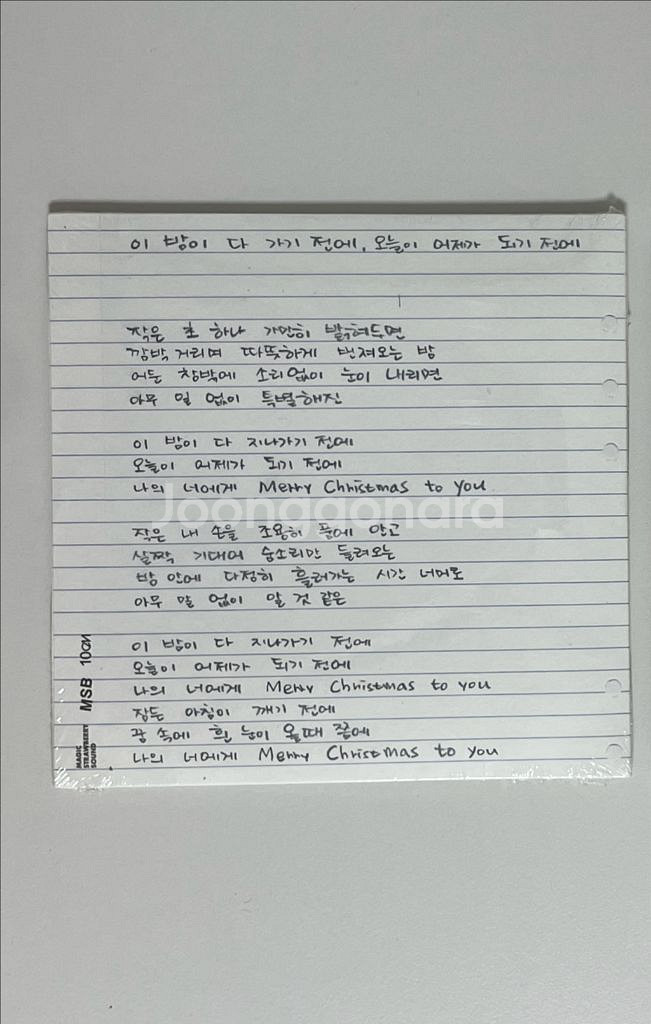 이 밤이 다 가기 전에, 오늘이 어제가 되기 전에
작은 초 하나 가만히 밝혀두면
깜박거리며 따뜻하게 번져오는 밤
어둔 창밖에 소리없이 눈이 내리면
아무 일 없이 특별해진
이 밤이 다 지나가기 전에
오늘이 어제가 되기 전에
나의 너에게 Merry Christmas to you
Joonggonara
작은 내 손을 조용히 품에 안고
살짝 기대어 숨소리만 들려오는
밤 안에 다정히 흘러가는 시간 너머로
아무 말 없이 알 것 같은
이 밤이 다 지나가기 전에
오늘이 어제가 되기 전에
나의 너에게 Merry Christmas to you
잠든 아침이 깨기 전에
꿈 속에 흰 눈이 올때 곁에
나의 너에게 Merry Christmas to you
MSB
MAGIC
STRAWBERRY
SOUND